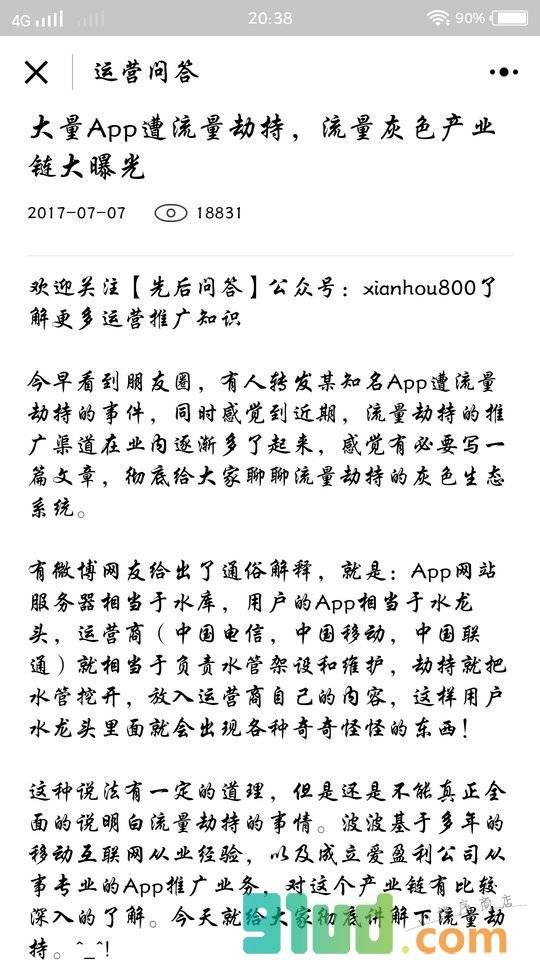 4G 20:38 90%
运营问答
大量App遭流量劫持，流量灰色产业
链大曝光
2017-07-07 18831
欢迎关注【先后问答】公众号：xianhou800了
解更多运营推广知识
今早看到朋友圈，有人转发某知名App遭流量
劫持的事件，同时感觉到近期，流量劫持的推
广渠道在业内逐渐多了起来，感觉有必要写一
篇文章，彻底给大家聊聊流量劫持的灰色生态
系统。
有微博网友给出了通俗解释，就是：App网站
服务器相当于水库，用户的App相当于水龙
头，运营商（中国电信，中国移动，中国联
通）就相当于负责水管架设和维护，劫持就把
水管挖开，放入运营商自己的内容，这样用户
水龙头里面就会出现各种奇奇怪怪的东西！
这种说法有一定的道理，但是还是不能真正全
面的说明白流量劫持的事情。波波基于多年的
移动互联网从业经验，以及成立爱盈利公司从
事专业的App推广业务，对这个产业链有比较
深入的了解。今天就给大家彻底讲解下流量劫
持。^_^!
91ud.com